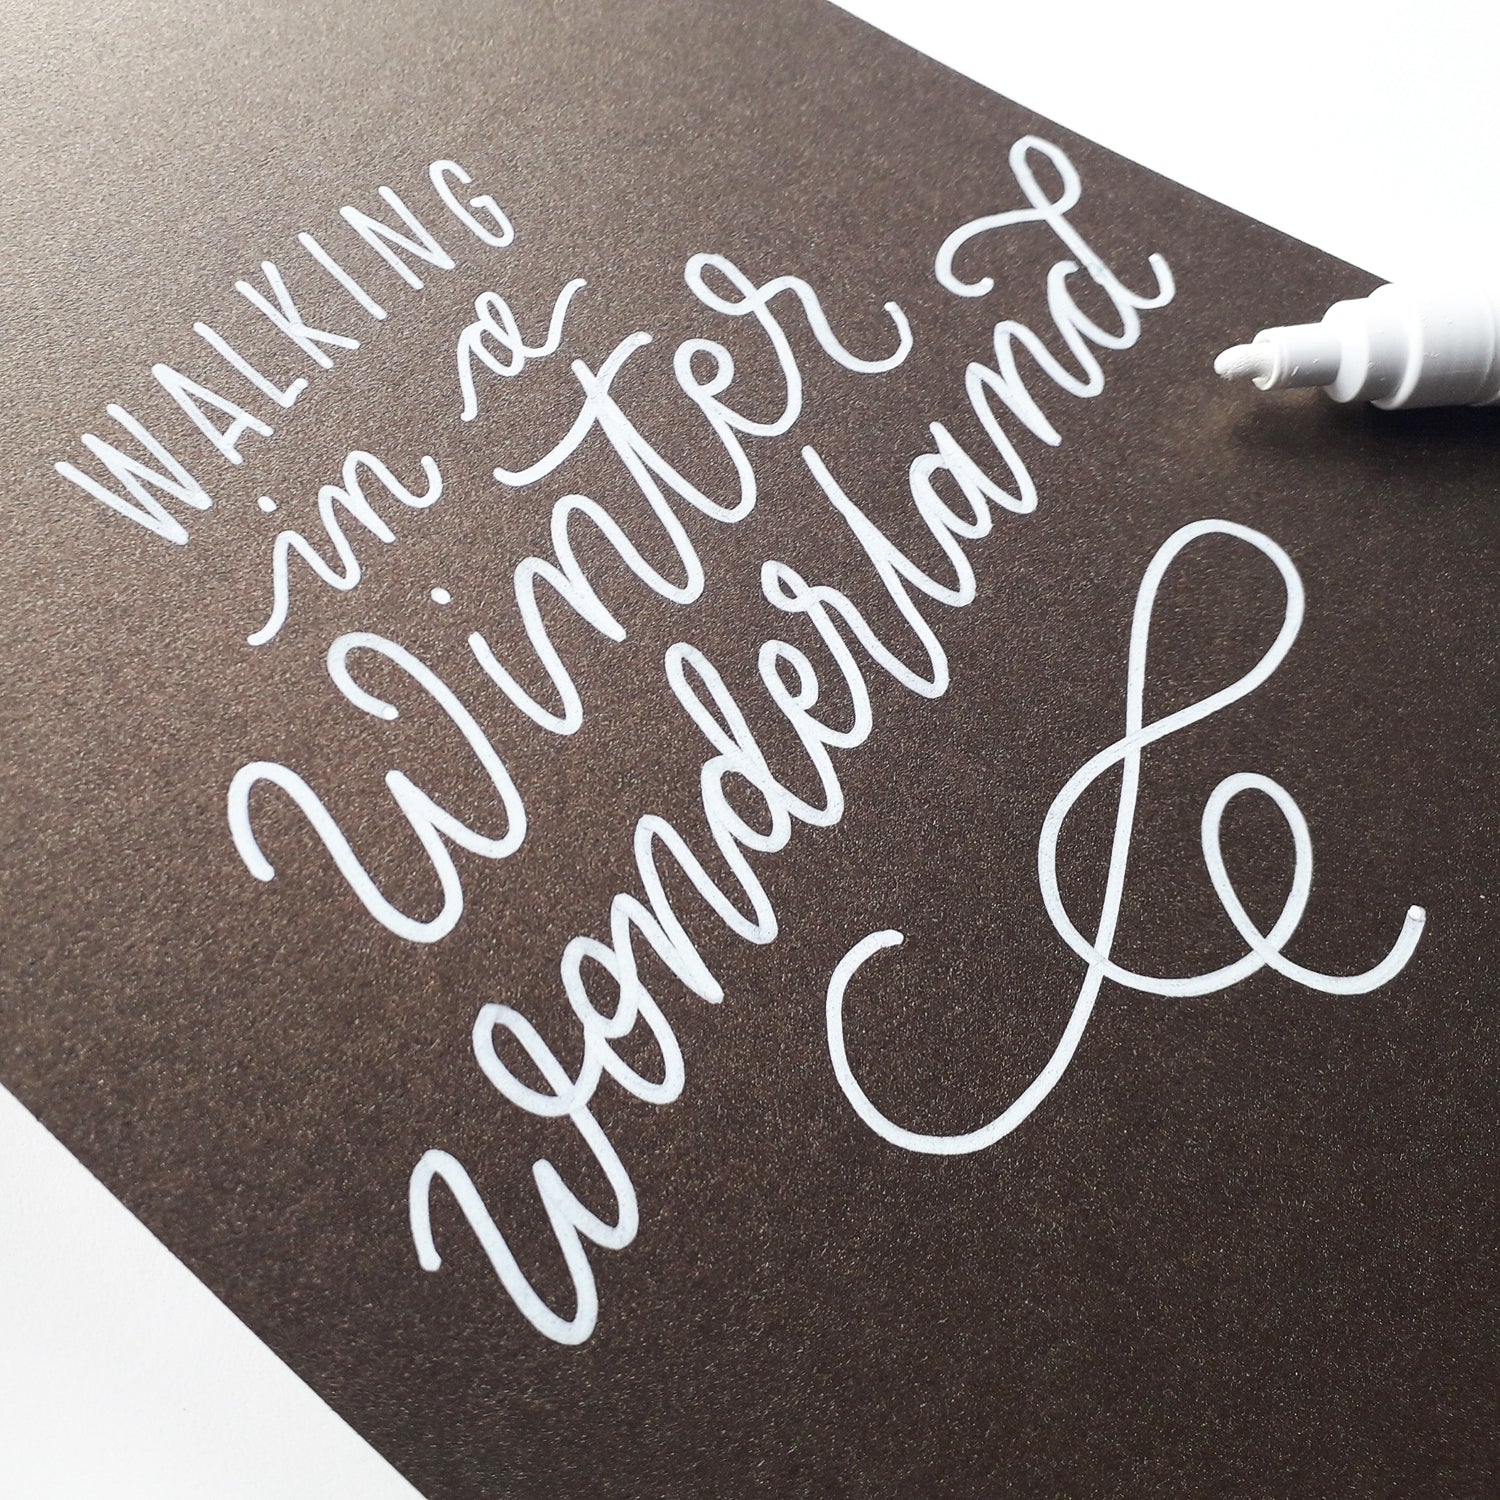 WALKING
in a
Winter
wonderland
&